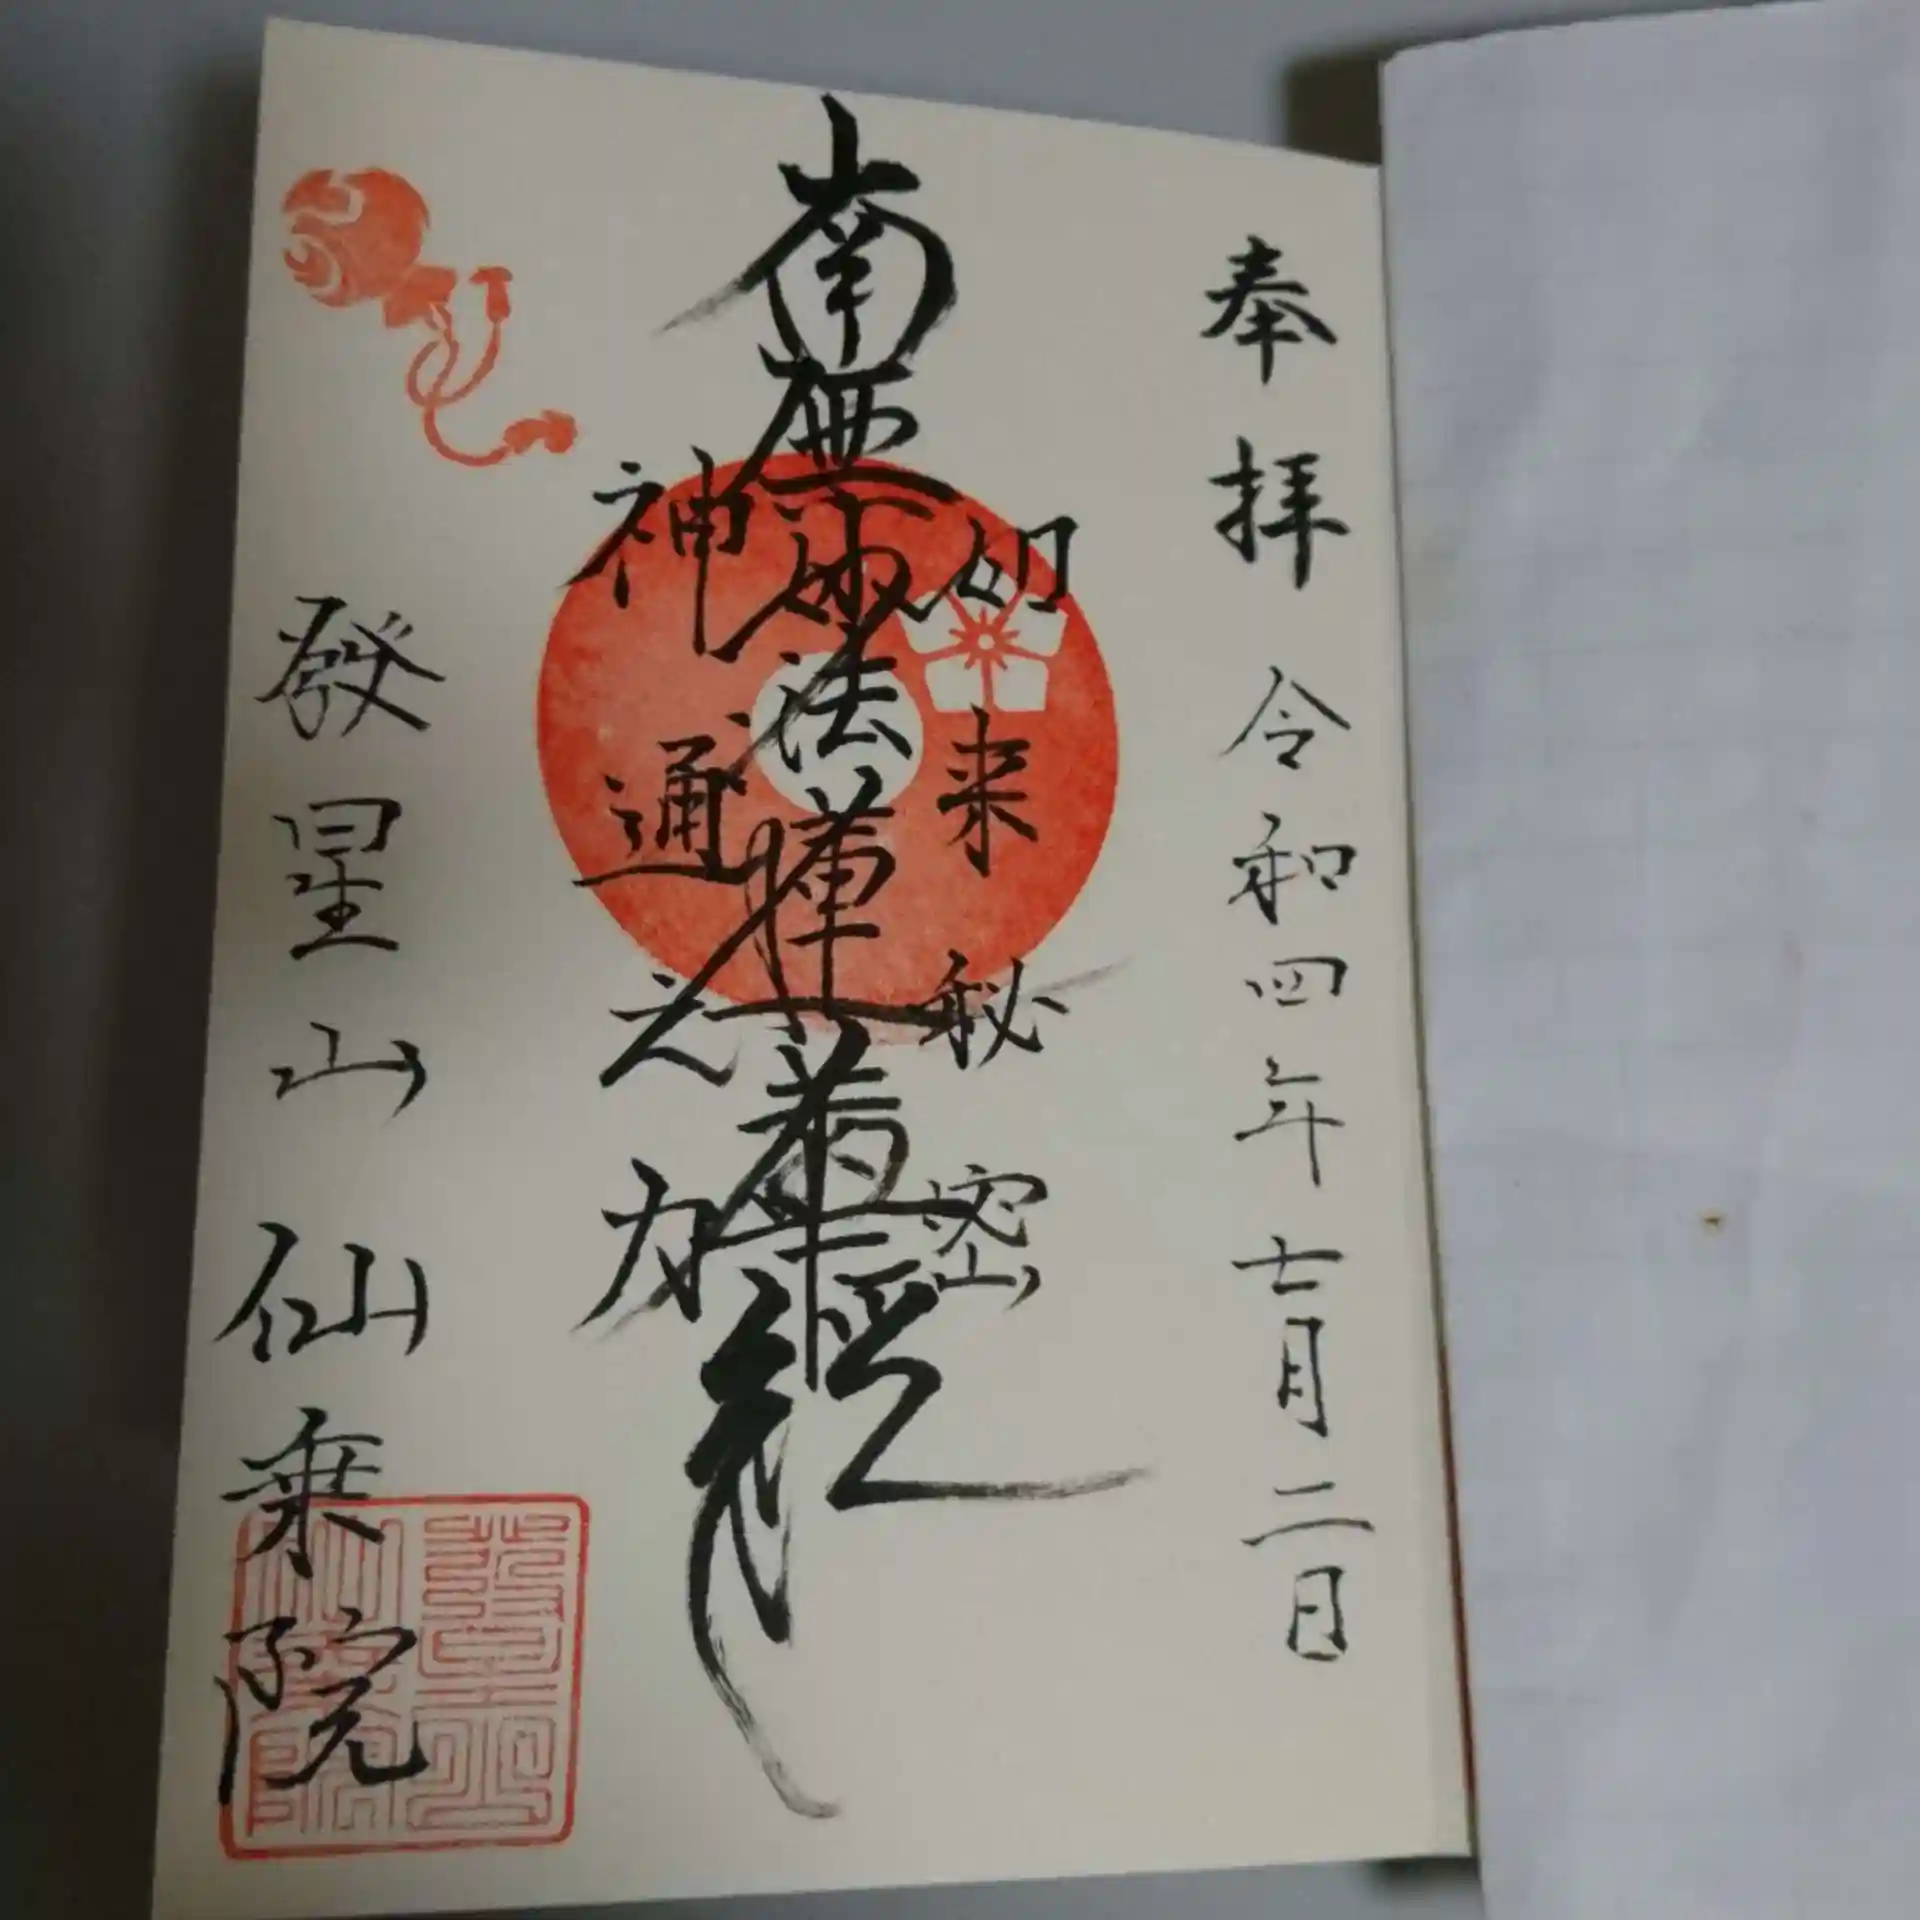 奉拝 令和四年七月二日
如来秘密
南無妙法蓮華経
神通之力
発星山仙乗院